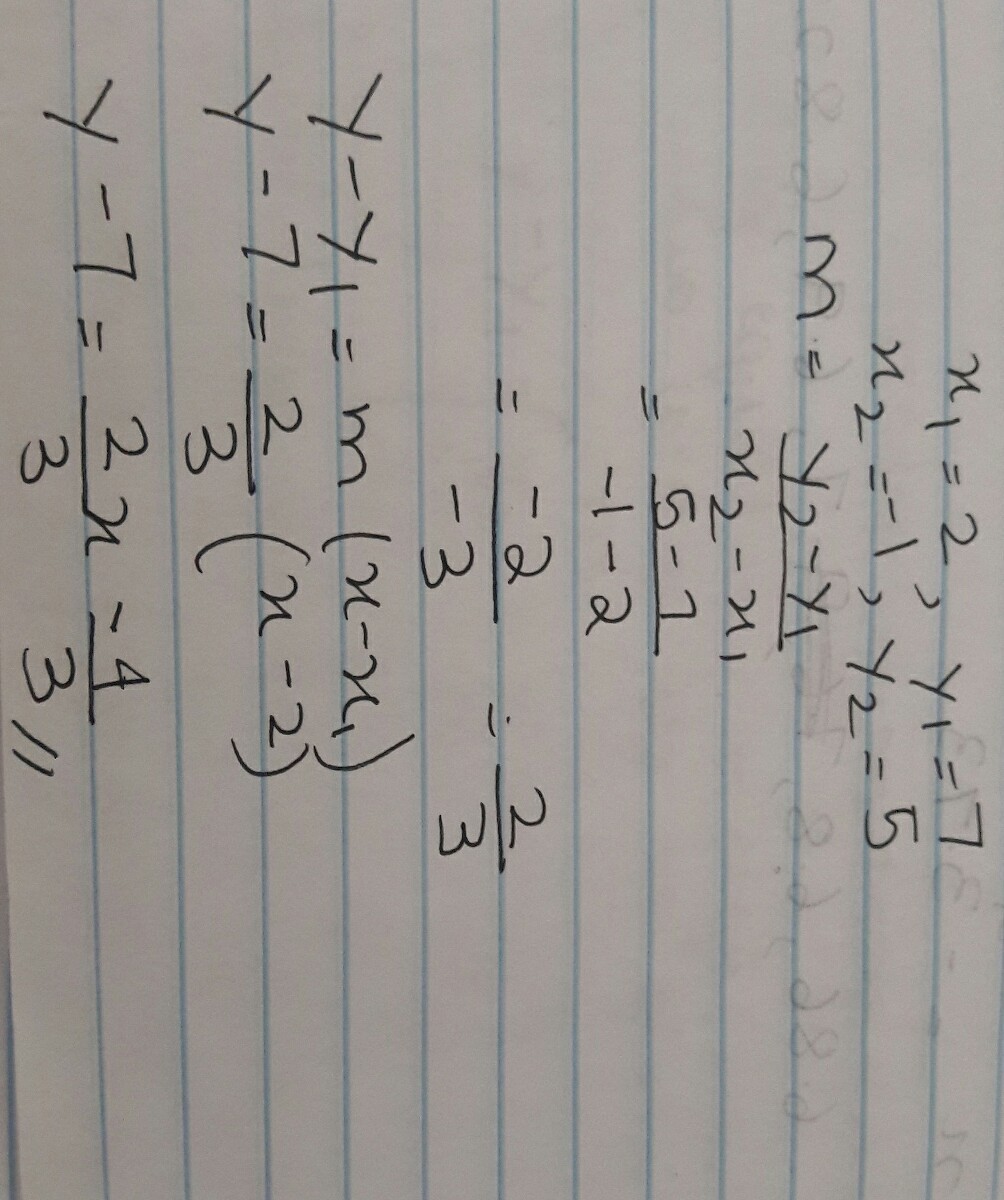 x₁ = 2 , y₁ = 7
x₂ = -1 , y₂ = 5
m = y₂ - y₁ / x₂ - x₁
= 5 - 7 / -1 - 2
= -2 / -3 = 2 / 3
y - y₁ = m (x - x₁)
y - 7 = 2/3 (x - 2)
y - 7 = 2/3 x - 4/3 //